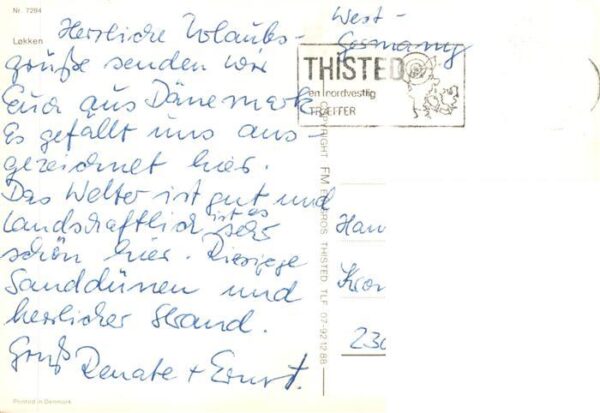 Nr. 7294
Løkken
Herrliche Urlaubs-
grüße senden wir
Euch aus Dänemark
Es gefällt uns aus-
gezeichnet hier.
Das Wetter ist gut und
landschaftlich ist es sehr
schön hier. Riesige
Sanddünen und
herrlicher Strand.
Gruß
Renate + Ernst.
Printed in Denmark
West-
Germany
THISTED
en nordvestlig
TRÆFFER
COPYRIGHT FM THISTED TLF. 07-921288
Han
Kron
230